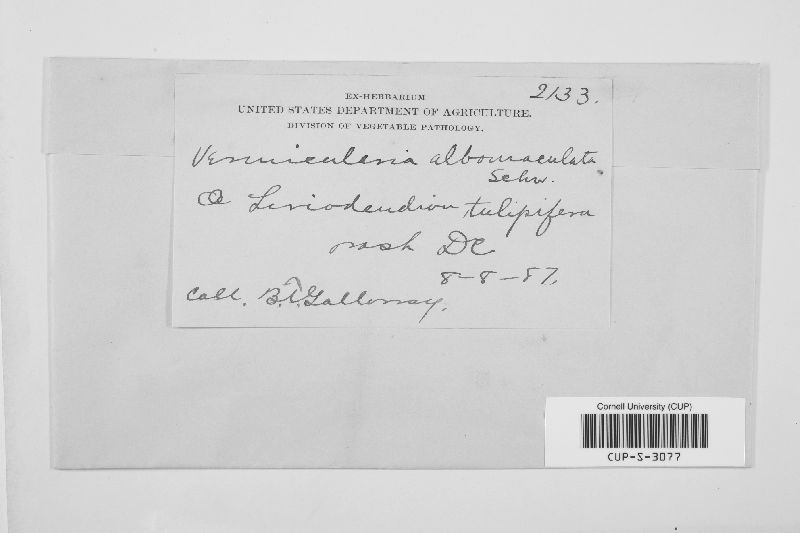 2133.
EX-HERBARIUM
UNITED STATES DEPARTMENT OF AGRICULTURE.
DIVISION OF VEGETABLE PATHOLOGY.
Vermicularia albomaculata
Schw.
Liriodendron tulipifera
Wash DC
8-8-87.
Coll. B.T. Galloway.
Cornell University (CUP)
CUP-S-3077